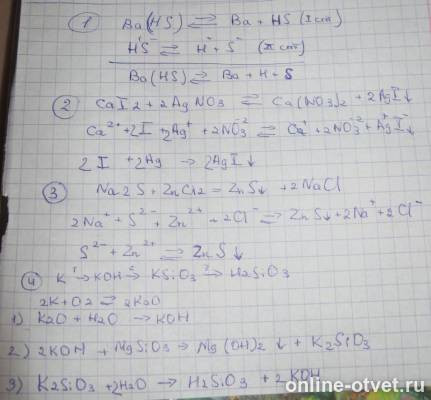 ① Ba(HS) ⇄ Ba + HS (I ст)
HS⁻ ⇄ H⁺ + S⁻ (II ст)
Ba(HS) ⇄ Ba + H + S
② CaI2 + 2AgNO3 ⇄ Ca(NO3)2 + 2AgI↓
Ca²⁺ + 2I⁻ + 2Ag⁺ + 2NO3⁻² ⇄ Ca⁺ + 2NO3⁻² + Ag⁺I⁻↓
2I + 2Ag → 2AgI↓
③ Na2S + ZnCl2 = ZnS↓ + 2NaCl
2Na⁺ + S²⁻ + Zn²⁺ + 2Cl⁻ ⇄ ZnS↓ + 2Na⁺ + 2Cl⁻
S²⁻ + Zn²⁺ ⇄ ZnS↓
④ K →¹ KOH →² KSiO3 →³ H2SiO3
2K + O2 ⇄ 2K2O
1) K2O + H2O → KOH
2) 2KOH + MgSiO3 → Mg(OH)2↓ + K2SiO3
3) K2SiO3 + 2H2O → H2SiO3 + 2KOH
online-otvet.ru